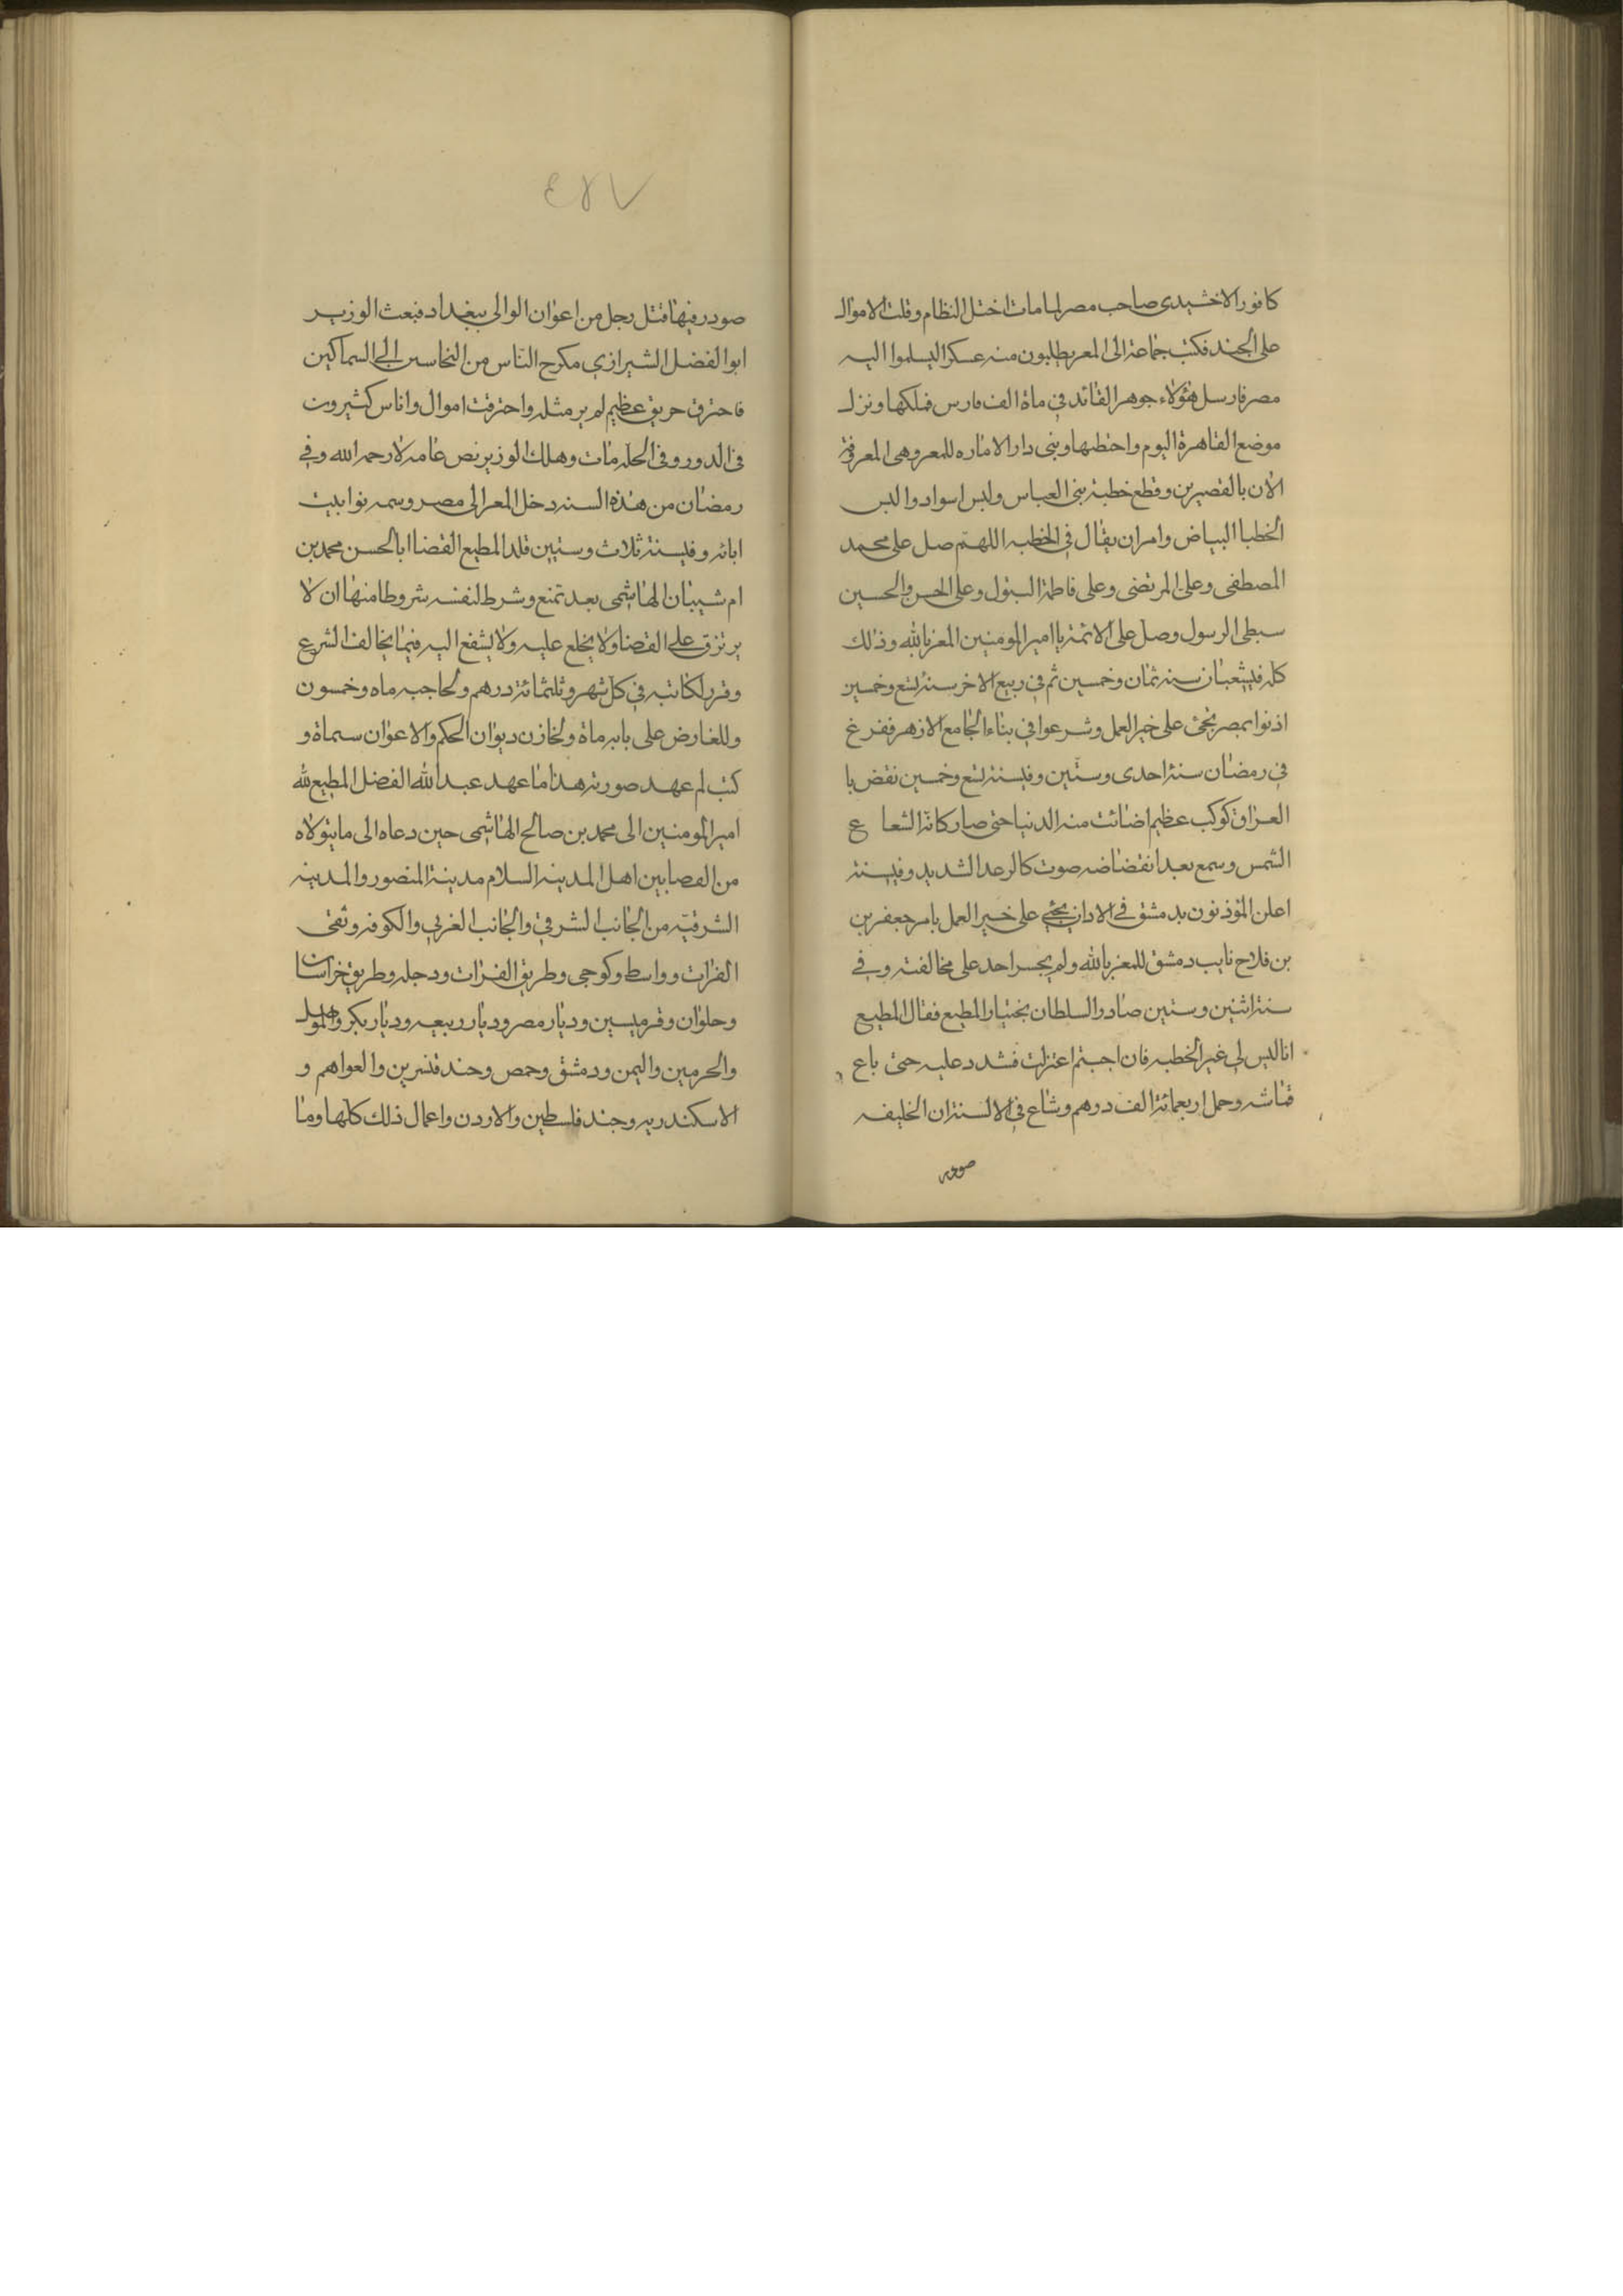 كافور الاخشيدى صاحب مصر لما مات اختل النظام وقلت الاموال
على الجند فكتب جماعة الى المعز يطلبون منه عسكرا ليسلموا اليه
مصر فارسل هؤلاء جوهر القائد فى ماة الف فارس فملكها ونزل
موضع القاهرة اليوم واختطها وبنى دار الاماره للمعز وهى المعرفة
الان بالقصيرين وقطع خطبة بنى العباس ولبس اسواد والبس
الخطبا البياض وامر ان يقال فى الخطبه اللهم صل على محمد
المصطفى وعلى المرتضى وعلى فاطمة البتول وعلى الحسن والحسين
سبطى الرسول وصل على الائمة يا امير المومنين المعز بالله وذلك
كله فى شعبان سنه ثمان وخمسين ثم فى ربيع الاخر سنة تسع وخمسين
اذنوا بمصر بحى على خير العمل وشرعوا فى بناء الجامع الازهر ففرغ
فى رمضان سنة احدى وستين وفى سنة تسع وخمسين نقض با
العراق كوكب عظيم اضائت منه الدنيا حتى صار كانه الشعا ع
الشمس وسمع بعد انقضاضه صوت كالرعد الشديد وفى سنة
اعلن المؤذنون بدمشق فى الاذان بحى على خير العمل بامر جعفر بن
بن فلاح نايب دمشق للمعز بالله ولم يجسر احد على مخالفته وفى
سنة اثنين وستين صادر السلطان بختيار المطيع فقال المطيع
انا ليس لى غير الخطبه فان احبتم اعتزلت فشدد عليه حتى باع
قماشه وحمل اربعمائة الف درهم وشاع فى الالسنة ان الخليفه
صودر
٤٨٧
صودر فيها قتل رجل من اعوان الوالى ببغداد فبعث الوزير
ابوالفضل الشيرازي مكرح الناس من النخاسين الى السماكين
فاحترق حريق عظيم لم ير مثله واحترقت اموال واناس كثيرون
فى الدور وفى الحله مات وهلك الوزير نص عامه لا رحمه الله وفى
رمضان من هذه السنه دخل المعز الى مصر وسمه توابيت
ابائه وفى سنة ثلاث وستين قلد المطيع القضا ابا الحسن محمد بن
ام شيبان الهاشمى بعد تمنع وشرط لنفسه شروطا منها ان لا
يرتزق على القضا ولا يخلع عليه ولا يشفع اليه فيما يخالف الشرع
وقرر لكاتبه فى كل شهر وثلثمائة درهم ولحاجبه ماه وخمسون
وللفارض على بابه ماة ولخازن ديوان الحكم والاعوان سماة و
كتب لم عهد صورته هذا ما عهد عبد الله الفضل المطيع لله
امير المومنين الى محمد بن صالح الهاشمى حين دعاه الى مايتولاه
من القصا بين اهل المدينه السلام مدينة المنصور والمدينه
الشرقيه من الجانب الشرقى والجانب الغربي والكوفه وثقى
الفرات وواسط وكوجى وطريق الفرات ودجله وطريق خراسان
وحلوان وقرميسين وديار مصر وديار ربيعه وديار بكر والموصل
والحرمين واليمن ودمشق وحمص وحند قنسرين والعواهم و
الاسكندريه وجند فلسطين والاردن واعمال ذلك كلها وما